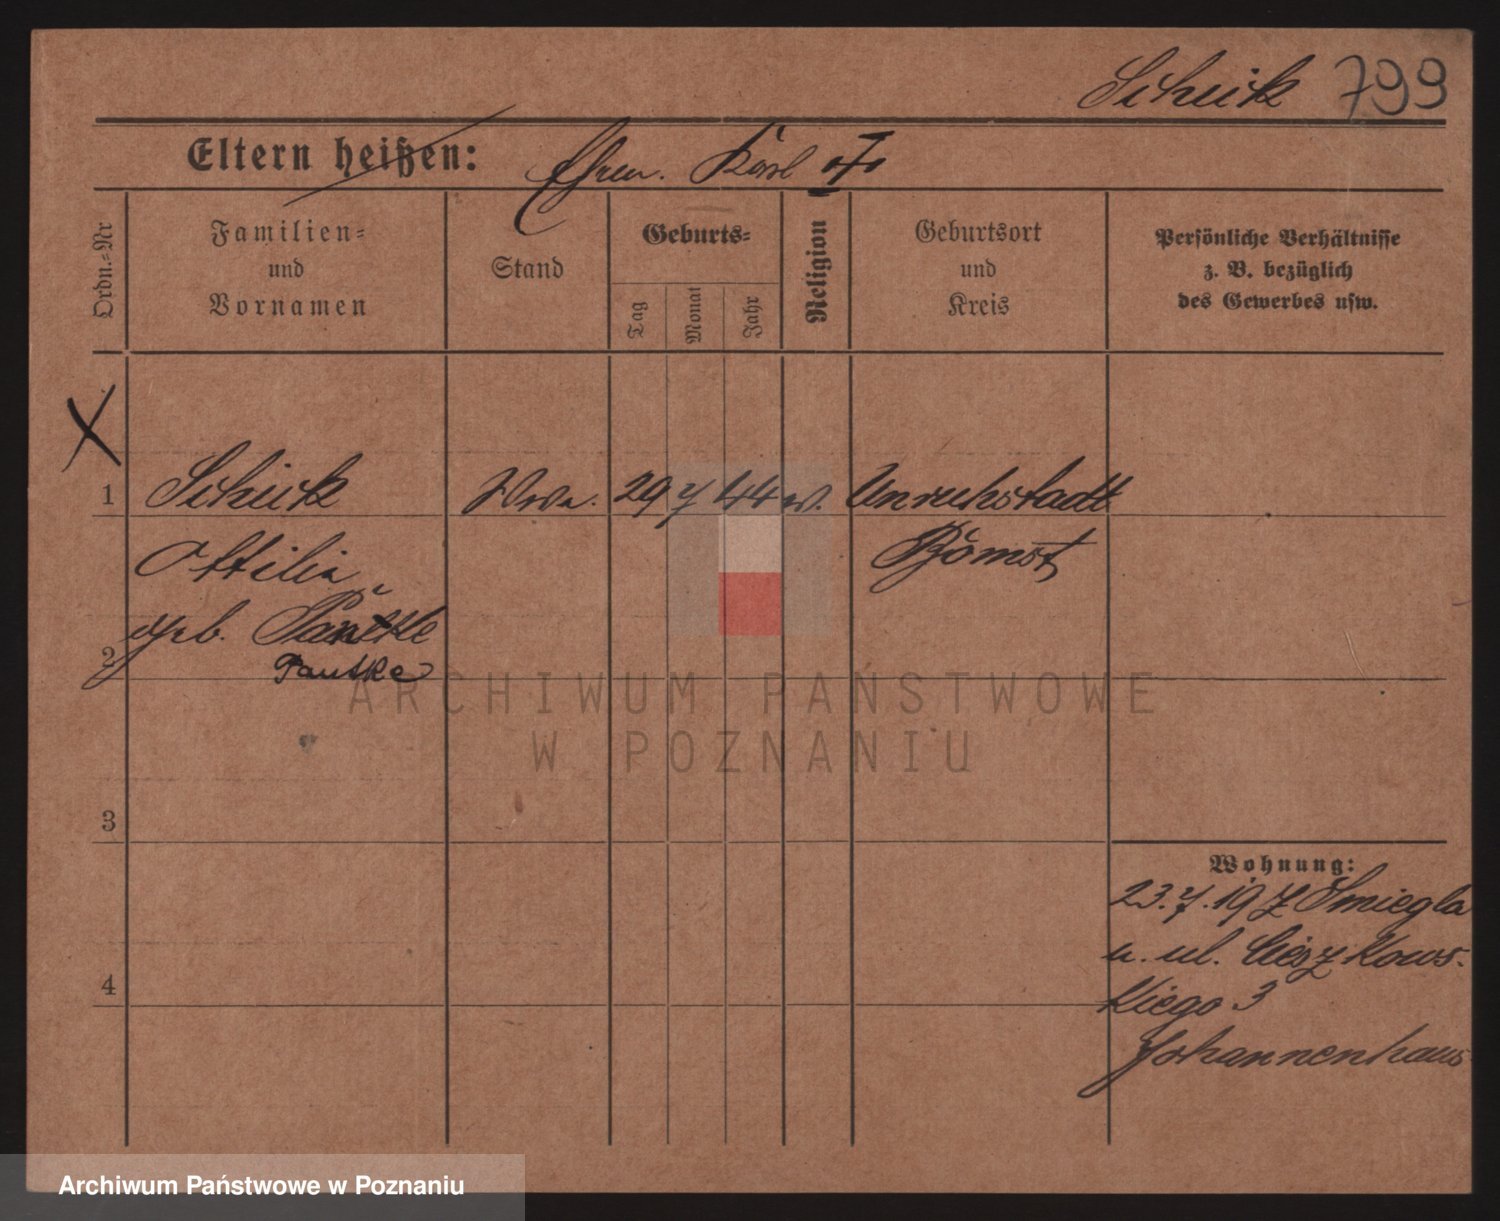 Schick 799
Eltern heißen: Ehem. Karl
Ordn.=Nr
Familien=
und
Vornamen
Stand
Geburts=
Tag
Monat
Jahr
Religion
Geburtsort
und
Kreis
Persönliche Verhältnisse
z. B. bezüglich
des Gewerbes usw.
1 Schick Wwe. 29 7 44 ev. Unruhstadt
Ottilie Bomst
geb. Päntke
2 Pautke
ARCHIWUM PAŃSTWOWE
W POZNANIU
3
Wohnung:
23.7.19 Z Śmiegla
n. ul. Ciesz Kows-
4
Kiego 3
Johannenhaus
Archiwum Państwowe w Poznaniu